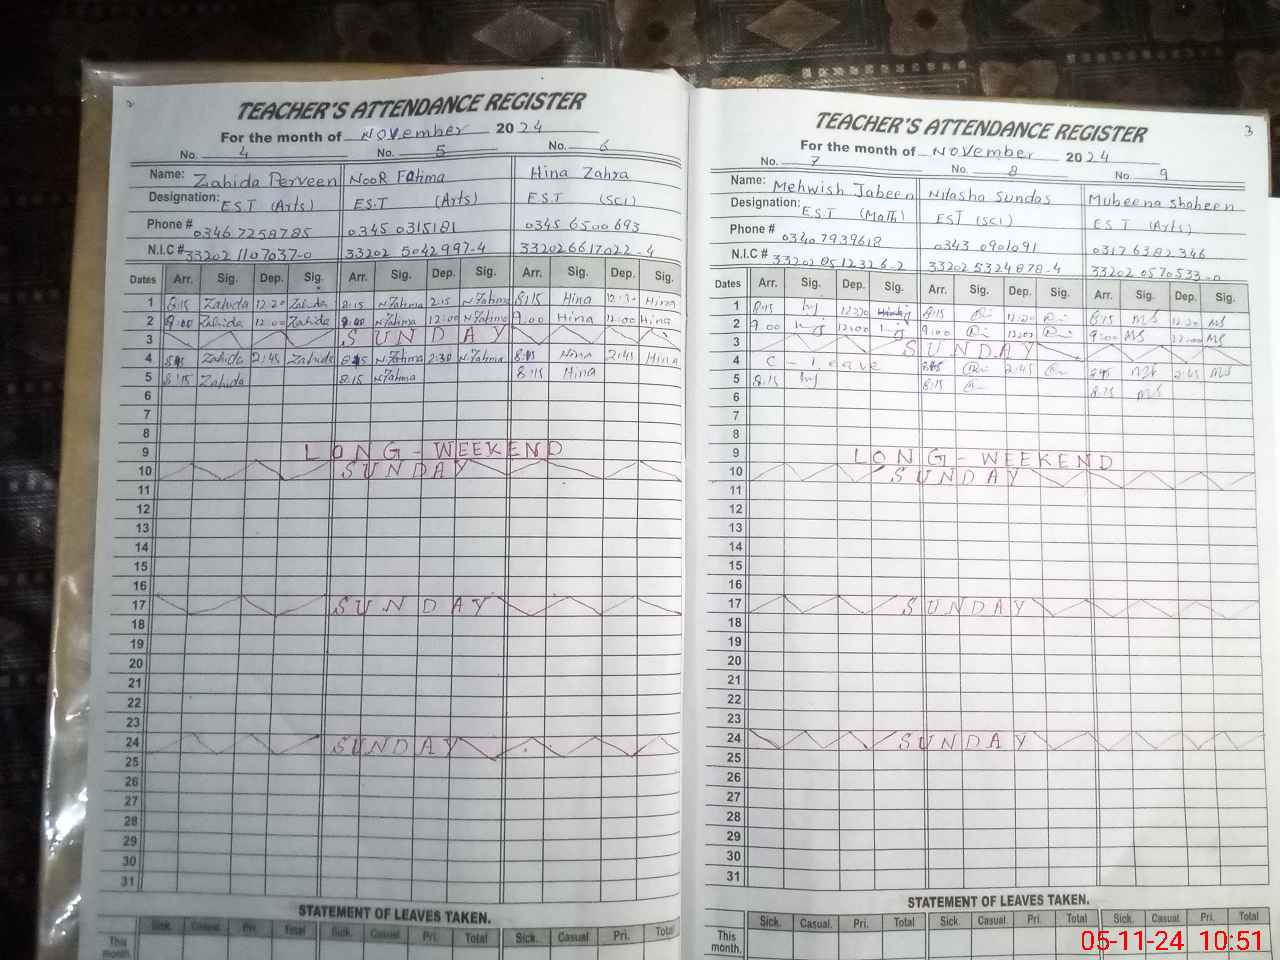 2
TEACHER'S ATTENDANCE REGISTER
For the month of November 2024
No. 4 No. 5 No. 6
Name: Zahida Perveen NooR Fatima Hina Zahra
Designation: EST (Arts) EST (Arts) EST (Sci)
Phone # 03467258785 0345 0315181 0345 6500693
N.I.C # 33202 1107037-0 33202 5042997-4 33202 6617022-4
Dates Arr. Sig. Dep. Sig. Arr. Sig. Dep. Sig. Arr. Sig. Dep. Sig.
1 8:15 Zahida 12:20 Zahida 8:15 N.Fatima 2:15 N.Fatima 8:15 Hina Hina
2 9:00 Zahida 12:00 Zahida N.Fatima 12:00 N.Fatima 9:00 Hina 12:00 Hina
3 SUNDAY
4 Zahida 2:45 Zahida N.Fatima 2:30 N.Fatima 8:15 Hina 2:45 Hina
5 8:15 Zahida 8:15 N.Fatima 8:15 Hina
6
7
8
9 LONG-WEEKEND
10 SUNDAY
11
12
13
14
15
16
17 SUNDAY
18
19
20
21
22
23
24 SUNDAY
25
26
27
28
29
30
31
STATEMENT OF LEAVES TAKEN.
Sick. Casual. Pri. Total Sick. Casual. Pri. Total Sick. Casual. Pri. Total
This month.
3
TEACHER'S ATTENDANCE REGISTER
For the month of November 2024
No. 7 No. 8 No. 9
Name: Mehwish Jabeen Nitasha Sundas Mubeena shaheen
Designation: EST (Math) EST (SCI) EST (Arts)
Phone # 03407939618 0343 0901091 0317 6382346
N.I.C # 33202 8512326-2 33202 5324878-4 33202 0570533-0
Dates Arr. Sig. Dep. Sig. Arr. Sig. Dep. Sig. Arr. Sig. Dep. Sig.
1 8:15 12:20 8:15 12:20 8:15 MS 12:20 MS
2 9:00 12:00 9:00 12:00 9:00 MS 12:00 MS
3 SUNDAY
4 C - leave 2:45 MS 2:45 MS
5 8:15 8:15 8:15 MS
6
7
8
9 LONG-WEEKEND
10 SUNDAY
11
12
13
14
15
16
17 SUNDAY
18
19
20
21
22
23
24 SUNDAY
25
26
27
28
29
30
31
STATEMENT OF LEAVES TAKEN.
Sick. Casual. Pri. Total Sick. Casual. Pri. Total Sick. Casual. Pri. Total
This month.
05-11-24 10:51